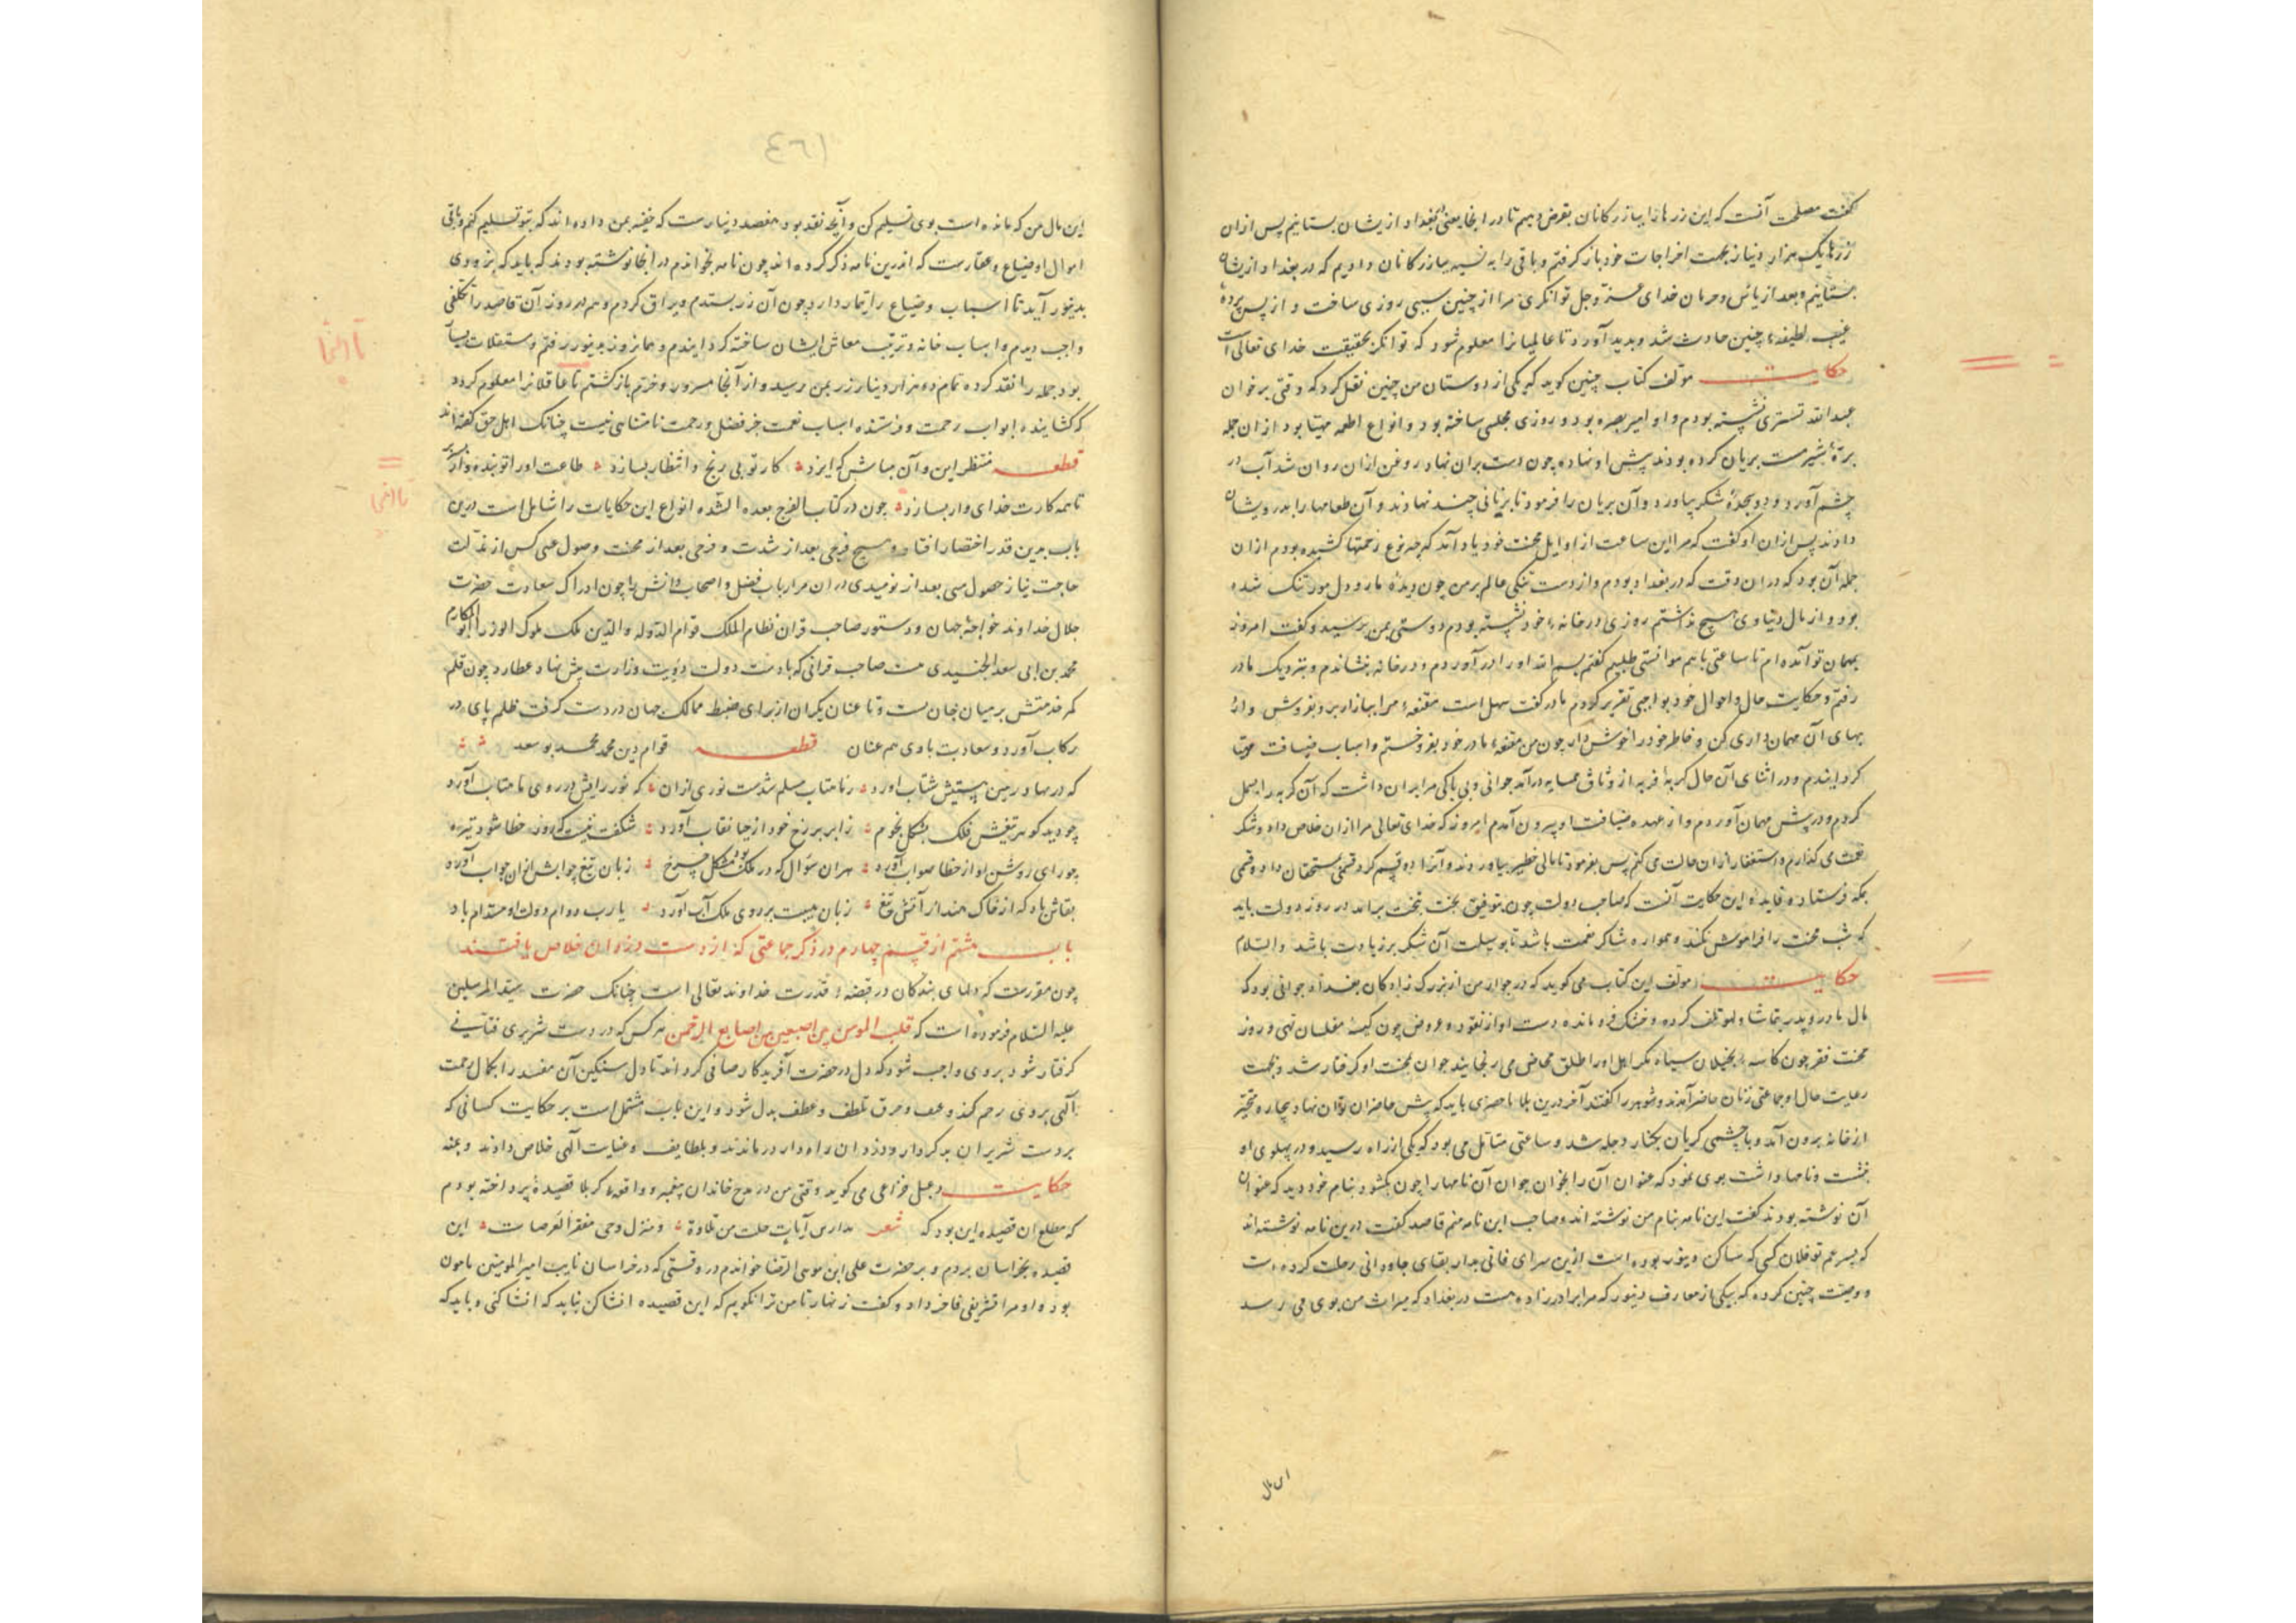 گفت مصلحت آنست که این زرها را ببازرکانان بقرض دهیم تا در آنجا یعنی بغداد ازیشان بستانیم پس ازان
زرها یک هزار دینار بجهت اخراجات خود باز گرفتم و باقی را به نسیه ببازرکانان دادیم که در بغداد ازیشان
بستانیم و بعد از یاس و حرمان خدای عز و جل توانگری مرا از چنین سببی روزی ساخت و از پس پرده
غیب لطیفهٔ چنین حادث شد و بدید آورد تا عالمیانرا معلوم شود که توانگر بحقیقت خدای تعالی است
حکایت مولف کتاب چنین گوید که یکی از دوستان من چنین نقل کرد که وقتی بر خوان
عبد الله تستری نشسته بودم و او امیر بصره بود و روزی مجلسی ساخته بود و انواع اطعمه مهیا بود ازان جمله
برهٔ شیرمست بریان کرده بودند پیش او نهاده چون دست بران نهاد روغن ازان روان شد آب در
چشم آورد و سجدهٔ شکر بیاورد و آن بریان را فرمود تا بر نانی چند نهادند و آن طعامها را بدرویشان
دادند پس ازان او گفت که مرا این ساعت از اوایل محنت خود یاد آمد که چه نوع زحمتها کشیده بودم ازان
جمله آن بود که دران وقت که در بغداد بودم و از دست تنگی عالم بر من چون دیدهٔ مار و دل مور تنگ شده
بود و از مال دنیاوی هیچ نداشتم روزی در خانهٔ خود نشسته بودم دوستی بمن رسید و گفت امروز
بمهمان تو آمده ام تا ساعتی باهم موانستی طلبیم گفتم بسم الله او را در آوردم و در خانه بنشاندم و بنزدیک مادر
رفتم و حکایت حال و احوال خود بواجبی تقریر کردم مادر گفت سهل است مقنعهٔ مرا ببازار برد و بفروش و از
بهای آن مهمان داری کن و خاطر خود را خوش دار چون من مقنعهٔ مادر خود بفروختم و اسباب ضیافت مهیا
کردانیدم و در اثنای آن حال گربهٔ فربه از وثاق همسایه در آمد جوانی و بی باکی مرا بران داشت که آن گربه را بسمل
کردم و در پیش مهمان آوردم و از عهدهٔ ضیافت او بیرون آمدم امروز که خدای تعالی مرا ازان خلاص داد و شکر
نعمت می گذارم و استغفار ازان حالت می کنم پس بفرمود تا مالی خطیر بیاوردند و آنرا دو قسم کرد قسمی بمستحقان داد و قسمی
بمکه فرستاد و فایدهٔ این حکایت آنست که صاحب دولت چون بتوفیق بخت بر تخت براند در روز دولت باید
که شب محنت را فراموش نکند و همواره شاکر نعمت باشد تا بوسیلت آن شکر بر زیادت باشد والسلام
حکایت مولف این کتاب می گوید که در جوار من از بزرگ زادکان بغداد جوانی بود که
مال مادر و پدر بتماشا و لهو تلف کرده و خشک فرو مانده دست او از نقود و عروض چون کیسهٔ مفلسان تهی و روز
محنت فقر چون کاسهٔ بخیلان سیاه مگر اهل او را طلق مخاض می رنجانید جوان بمحنت او گرفتار شد و بجهت
رعایت حال او جماعتی زنان حاضر آمدند و شوهر را گفتند آخر درین بلا ماحضری باید که پیش حاضران توان نهاد بیچاره متحیر
از خانه برون آمد و با چشمی گریان بکنار دجله شد و ساعتی متامل می بود که یکی از راه رسید و در پهلوی او
بنشست و نامها داشت بوی نمود که عنوان آن را بخوان جوان آن نامها را چون بگشود بنام خود دید که عنوان
آن نوشته بودند گفت این نامه بنام من نوشته اند و صاحب این نامه منم قاصد گفت درین نامه نوشته اند
که پسر عم تو فلان کسی که ساکن دینور بوده است ازین سرای فانی بدار بقای جاودانی رحلت کرده است
و وصیت چنین کرده که بیکی از معارف دینور که مرا برادر زاده هست در بغداد که میراث من بوی می رسد
این مال
٤٦١
این مال من که مانده است بوی تسلیم کن و آنچه نقد بود هفصد دینارست که خفیه بمن داده اند که بتو تسلیم کنم و باقی
اموال او ضیاع و عقارست که اندرین نامه ذکر کرده اند چون نامه بخواندم در آنجا نوشته بودند که باید که بزودی
بدینور آید تا اسباب و ضیاع را تیمار دارد چون آن زر بستدم و یراق کردم و هم در روز آن قاصد را تکلفی
واجب دیدم و اسباب خانه و ترتیب معاش ایشان ساخته کردانیدم و همان روز بدینور رفتم و مستغلات بسیار
بود جمله را نقد کرده تمام ده هزار دینار زر بمن رسید و از آنجا مسرور و خرم باز گشتم تا عاقلانرا معلوم گردد
که گشاینده ابواب رحمت و فرستنده اسباب نعمت جز فضل و رحمت نامتناهی نیست چنانک اهل حق گفته اند
قطعه منتظر این و آن مباش که ایزد کار تو بی رنج و انتظار بسازد طاعت او را تو بنده وار
تا همه کارت خدای وار بسازد چون در کتاب الفرج بعد الشده انواع این حکایات را شامل است درین
باب بدین قدر اختصار افتاد و هیچ فرجی بعد از شدت و فرحی بعد از محنت وصول علی کس از مذلت
حاجت نیاز حصول می بعد از نومیدی دران مر ارباب فضل و اصحاب دانش را چون ادراک سعادت حضرت
جلال خداوند خواجهٔ جهان و دستور صاحب قران نظام الملک قوام الدوله والدین ملک ملوک الوزرا ابو المکارم
محمد بن ابی سعد الجنیدی هست صاحب قرانی که با دست دولت دویت وزارت پیش نهاد عطارد چون قلم
کمر خدمتش بر میان جان بست و تا عنان یکران از برای ضبط ممالک جهان در دست گرفت ظلم پای در
رکاب آورد و سعادت با وی هم عنان قطعه قوام دین محمد محمد بو سعد
که در مهاد زمین ستیش شتاب اورد رنا متاب مسلم شدست نوری ازان که نور رایش در روی ماهتاب آورد
چو دید گوهر تیغش فلک بشکل نجوم ز ابر بر رخ خود از حیا نقاب آورد شکفت نیست که روز خطا شود تیره
چو رای روشن او از خطا صواب آورد هران سوال که در ملک بود مشکل چرخ زبان تیغ جوابش ازان جواب آورد
بقاش باد که از خاک هند از آتش تیغ زبان هیبت بر روی ملک آب آورد یا رب دوام دولت او مستدام باد
باب هشتم از قسم چهارم در ذکر جماعتی که از دست دزدان خلاص یافتند
چون مقررست که دلهای بندگان در قبضهٔ قدرت خداوند تعالی است چنانک حضرت سید المرسلین
علیه السلام فرموده است که قلب المومن بین اصبعین من اصابع الرحمن هر کس که در دست شریری فتانی
گرفتار شود بروی واجب شود که دل در حضرت آفریدکار صافی گرداند تا دل سنگین آن مفسد را بکمال رحمت
آلهی بروی رحم کند و عنف و حرق تلطف و عطف بدل شود و این باب مشتمل است بر حکایت کسانی که
بردست شریران بدکردار و دزدان راه دار در ماندند و بلطایف و عنایت آلهی خلاص دادند و بمنه
حکایت دعبل خزاعی می گوید وقتی من در مدح خاندان پیغمبر و واقعهٔ کربلا قصیدهٔ پرداخته بودم
که مطلع ان قصیده این بود که شعر مدارس آیات خلت من تلاوة و منزل وحی مقفر العرصات این
قصیده بخراسان بردم و بر حضرت علی ابن موسی الرضا خواندم در وقتی که در خراسان نایب امیر المومنین مامون
بود و او مرا تشریفی فاخر داد و گفت زنهار تا من ترا نگویم که این قصیده انشا کن نباید که انشا کنی و باید که